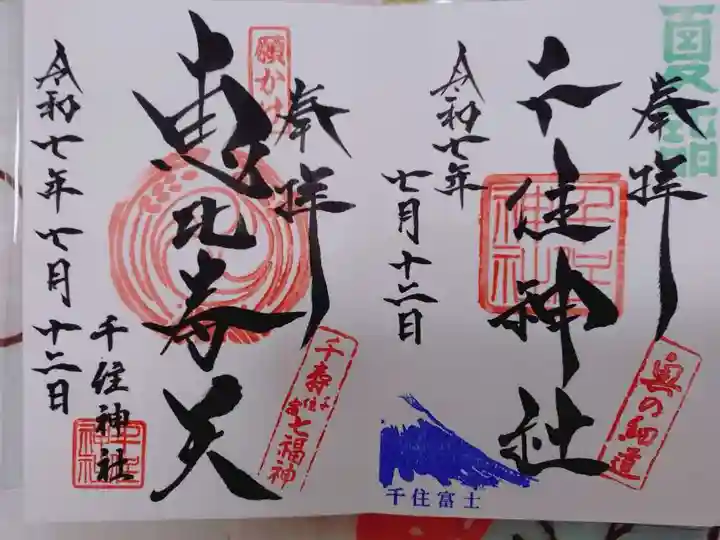 夏詣
奉拝
千住神社
千住神社
奥の細道
令和七年
七月十二日
千住富士
願かけ
奉拝
恵比寿天
千寿七福神
千住神社
令和七年七月十二日